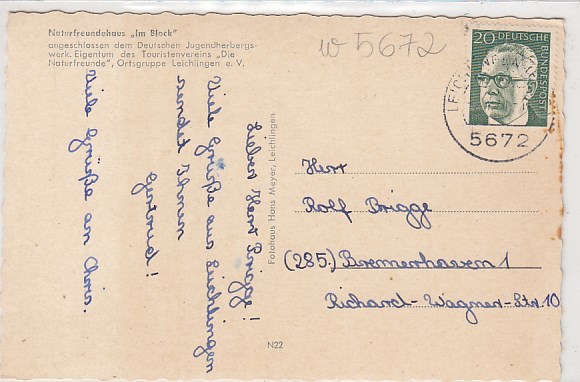 Naturfreundehaus „Im Block"
angeschlossen dem Deutschen Jugendherbergs-
werk. Eigentum des Touristenvereins „Die
Naturfreunde", Ortsgruppe Leichlingen e. V.
w 5672
20 DEUTSCHE
BUNDESPOST
5672
Lieber Herr Brigge!
Viele Grüße aus Leichlingen
sendet Ihnen
Gertrud!
Viele Grüße an Chris.
Fotohaus Hans Meyer, Leichlingen
Herr
Rolf Brigge
(285.) Bremerhaven 1
Richard-Wagner-Str. 10
N22